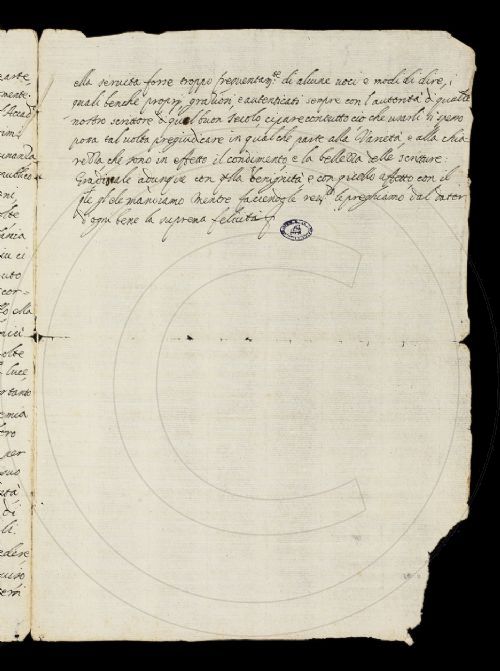 ella servita forse troppo frequentam.te di alcune voci e modi di dire, i
quali benche proprj gravidi, e autenticati sempre con l'autorità di qualche
nostro scrittore di quel buon secolo ci pare contuttociò che usarli sì spesso
possa tal volta pregiudicare in qualche parte alla Varietà e alla chia
rezza che sono in effetto il condimento e la bellezza delle scritture.
Gradiscale adunque con q.lla benignità e con q.llo affetto con il
q.le gl'ele mandiamo mentre facendogli rev.za le preghiamo dal dator
d'ogni bene la suprema felicità
earte
mente
l'Accad
rima
omanda
eni
olte
ci
uto
cor=
ella
nici
olte
luce
ertanto
emia
ero
per
suo
età
di
li.
edere